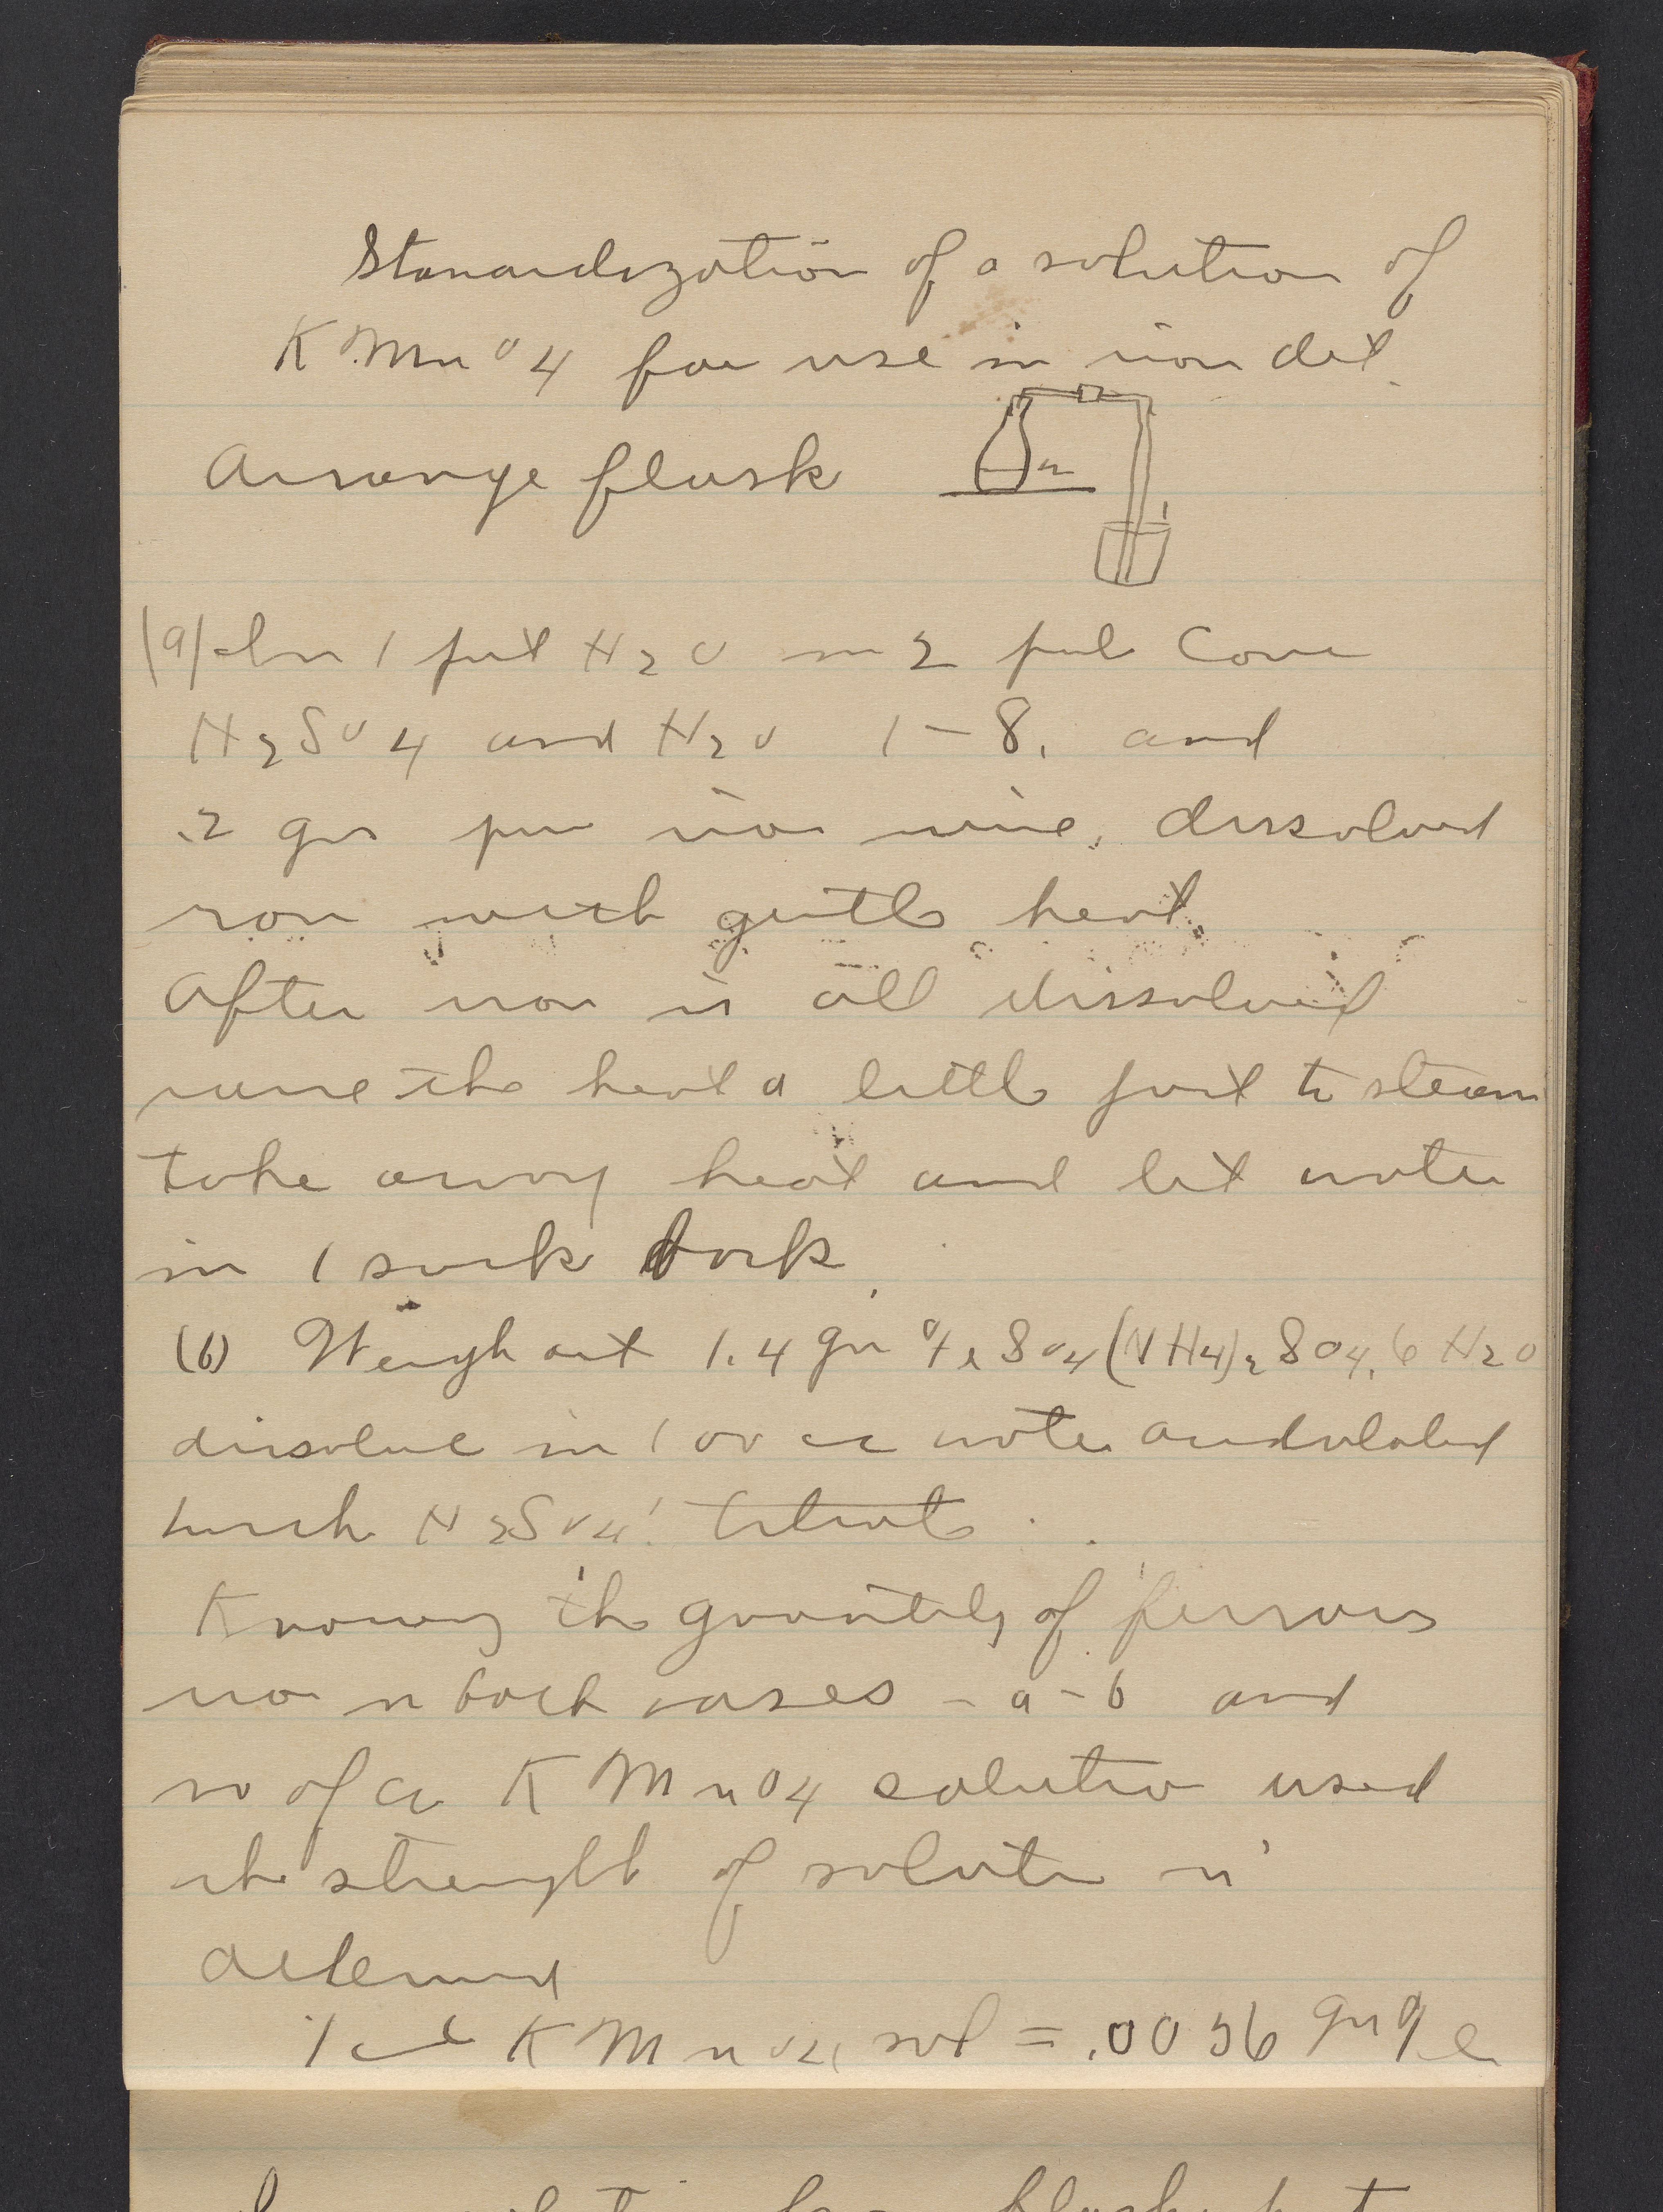 Stanardization of a solution of
KMnO4 for use in iron det.
Arrange flask
2
1
(a) In 1 put H2O in 2 put Conc
H2SO4 and H2O 1-8, and
.2 gr pure iron wire, dissolved
iron with gentle heat.
After iron is all dissolved
raise the heat a little just to steam
take away heat and let water
in 1 suck back.
(b) Weigh out 1.4 gr FeSO4(NH4)2SO4.6H2O
dissolve in 100 cc water acidulated
with H2SO4. titrate.
Knowing the quantity of ferrous
iron in both cases - a - b and
no of cc KMnO4 solution used
the strenght of solution is
determined
1 cc KMnO4 sol = .0056 gr Fe
flask